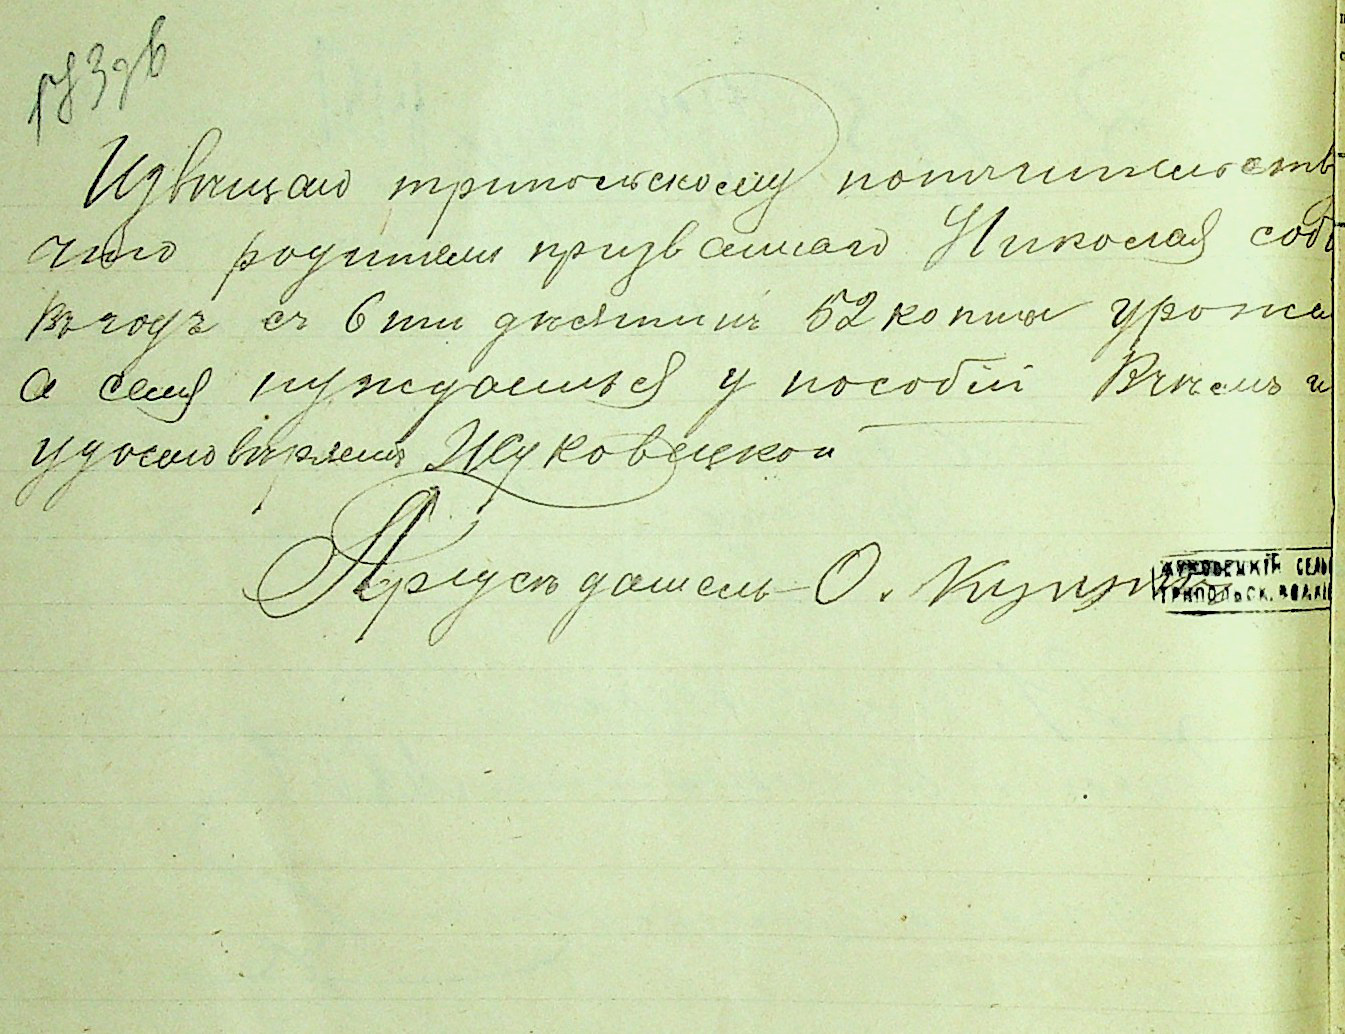 183 дѣ
Извѣщаю трипольскому попечительств
что родители призваннаго Николая соб
въ годъ съ 6ти десятинъ 52 копны урожа
а семя нуждаиться у пособіи Вчемъ и
удостовѣряетъ Жуковецкой
Председатель О.
ЖУКОВЕЦКІЙ СЕЛЬ
ТРИПОЛЬСК. ВОЛ